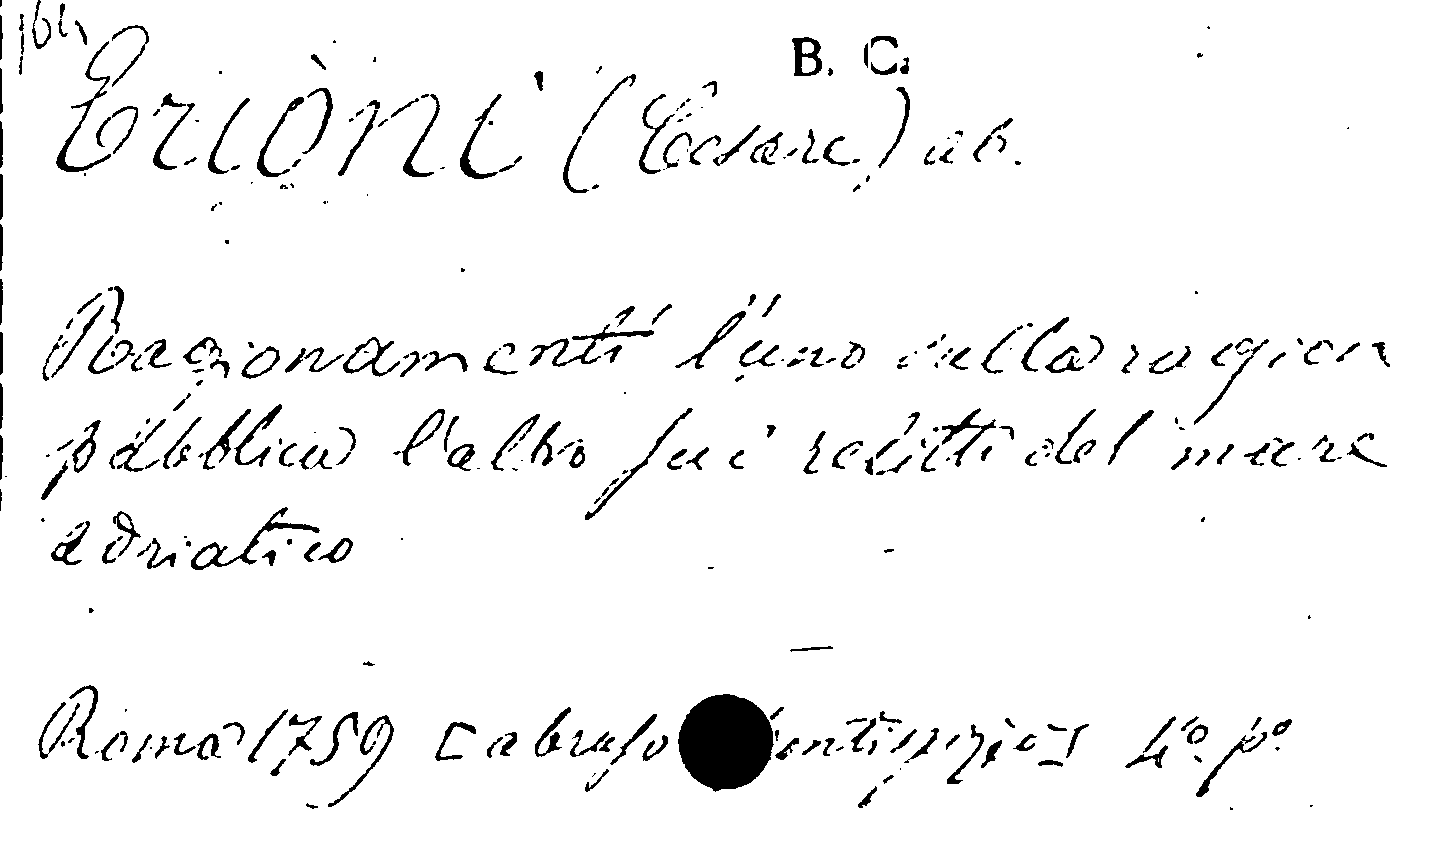 164
B. C.
Erioni (Cesare) ab.
Ragionamenti l'uno sulla ragion
pubblica l'altro sui redditi del mare
adriatico
Roma 1759 [abraso frontispizio] 4º pº